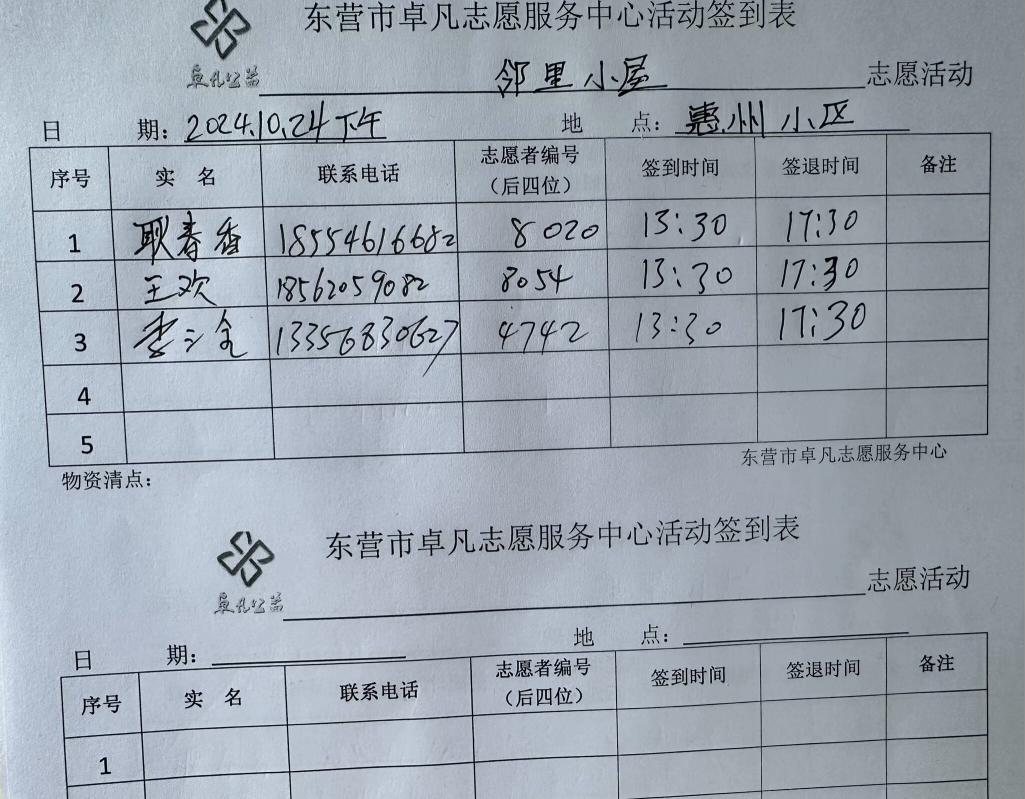 东营市卓凡志愿服务中心活动签到表
卓凡公益 邻里小屋 志愿活动
日 期：2024.10.24下午 地 点：惠州小区
序号 实 名 联系电话 志愿者编号（后四位） 签到时间 签退时间 备注
1 耿春香 18554616682 8020 13:30 17:30
2 王欢 18562059082 8054 13:30 17:30
3 李三全 13356830627 4742 13:30 17:30
4
5
东营市卓凡志愿服务中心
物资清点：
东营市卓凡志愿服务中心活动签到表
卓凡公益 志愿活动
日 期： 地 点：
序号 实 名 联系电话 志愿者编号（后四位） 签到时间 签退时间 备注
1